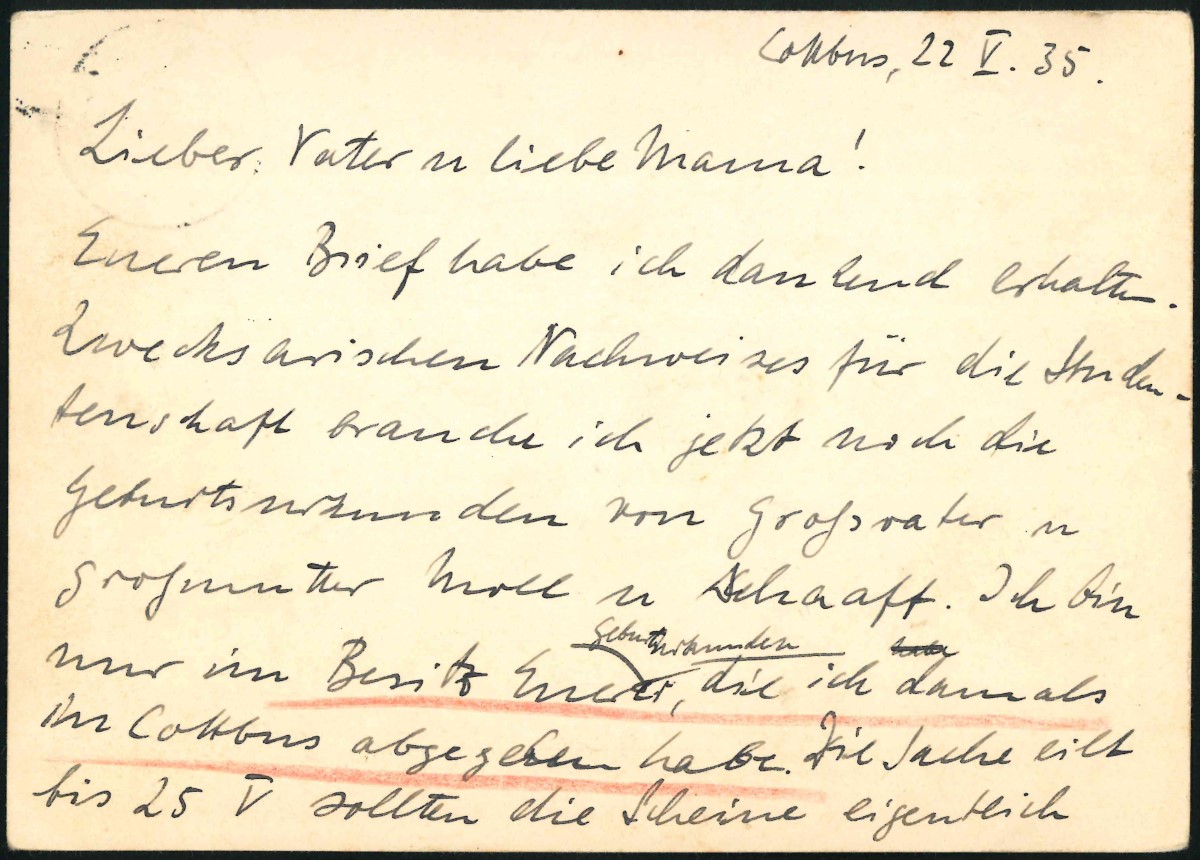 Cottbus, 22 V. 35.
Lieber Vater u liebe Mama!
Eueren Brief habe ich dankend erhalten.
Zwecks arischen Nachweises für die Studen-
tenschaft brauche ich jetzt noch die
Geburtsurkunden von Grossvater u
Grossmutter Moll u Schaaff. Ich bin
Geburtsurkunden habe
nur im Besitz Euerer, die ich damals
in Cottbus abgegeben habe. Die Sache eilt
bis 25 V sollten die Scheine eigentlich